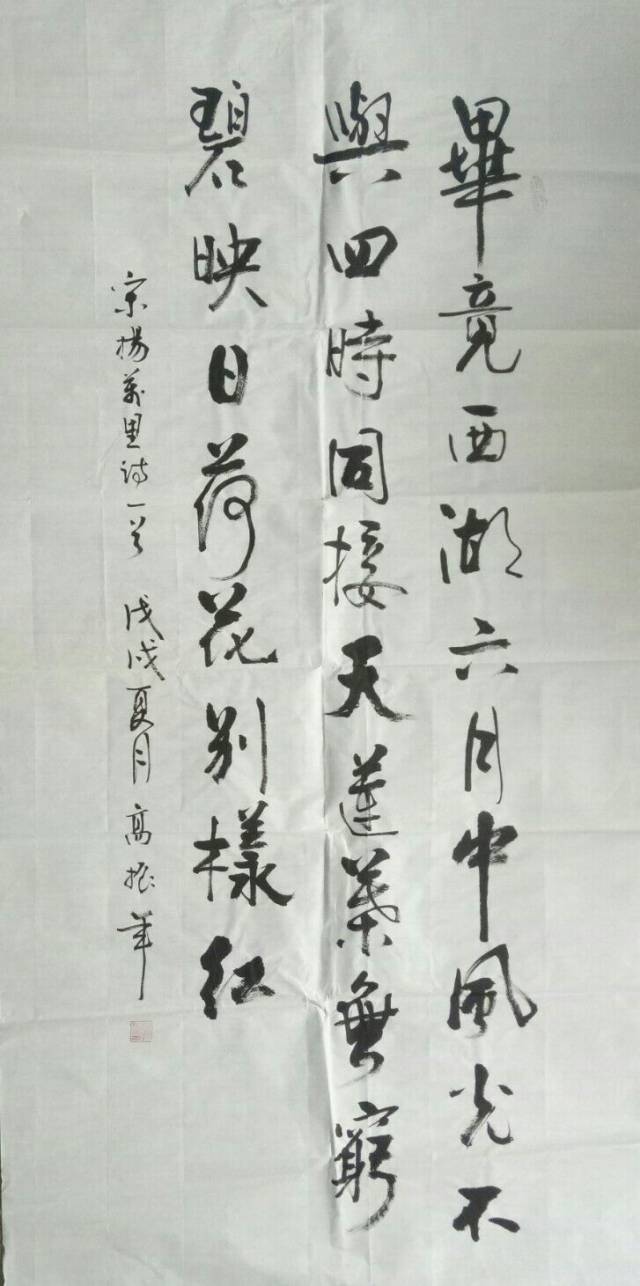 畢竟西湖六月中風光不
與四時同接天蓮葉無窮
碧映日荷花別樣紅
宋楊萬里詩一首 戊戌夏月 高振華